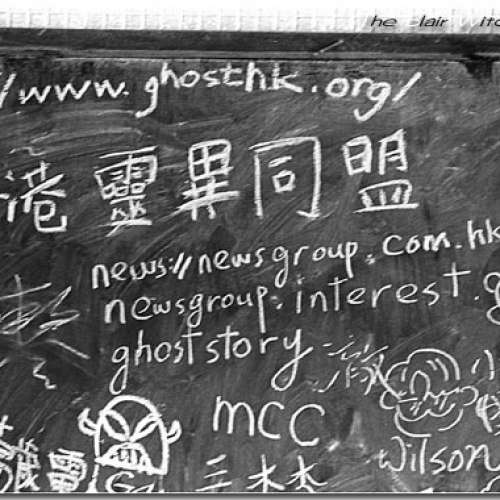 he lair
//www.ghosthk.org/
港靈異同盟
news://newsgroup.com.hk
newsgroup.interest.g
ghoststory
MCC
Wilson
三木